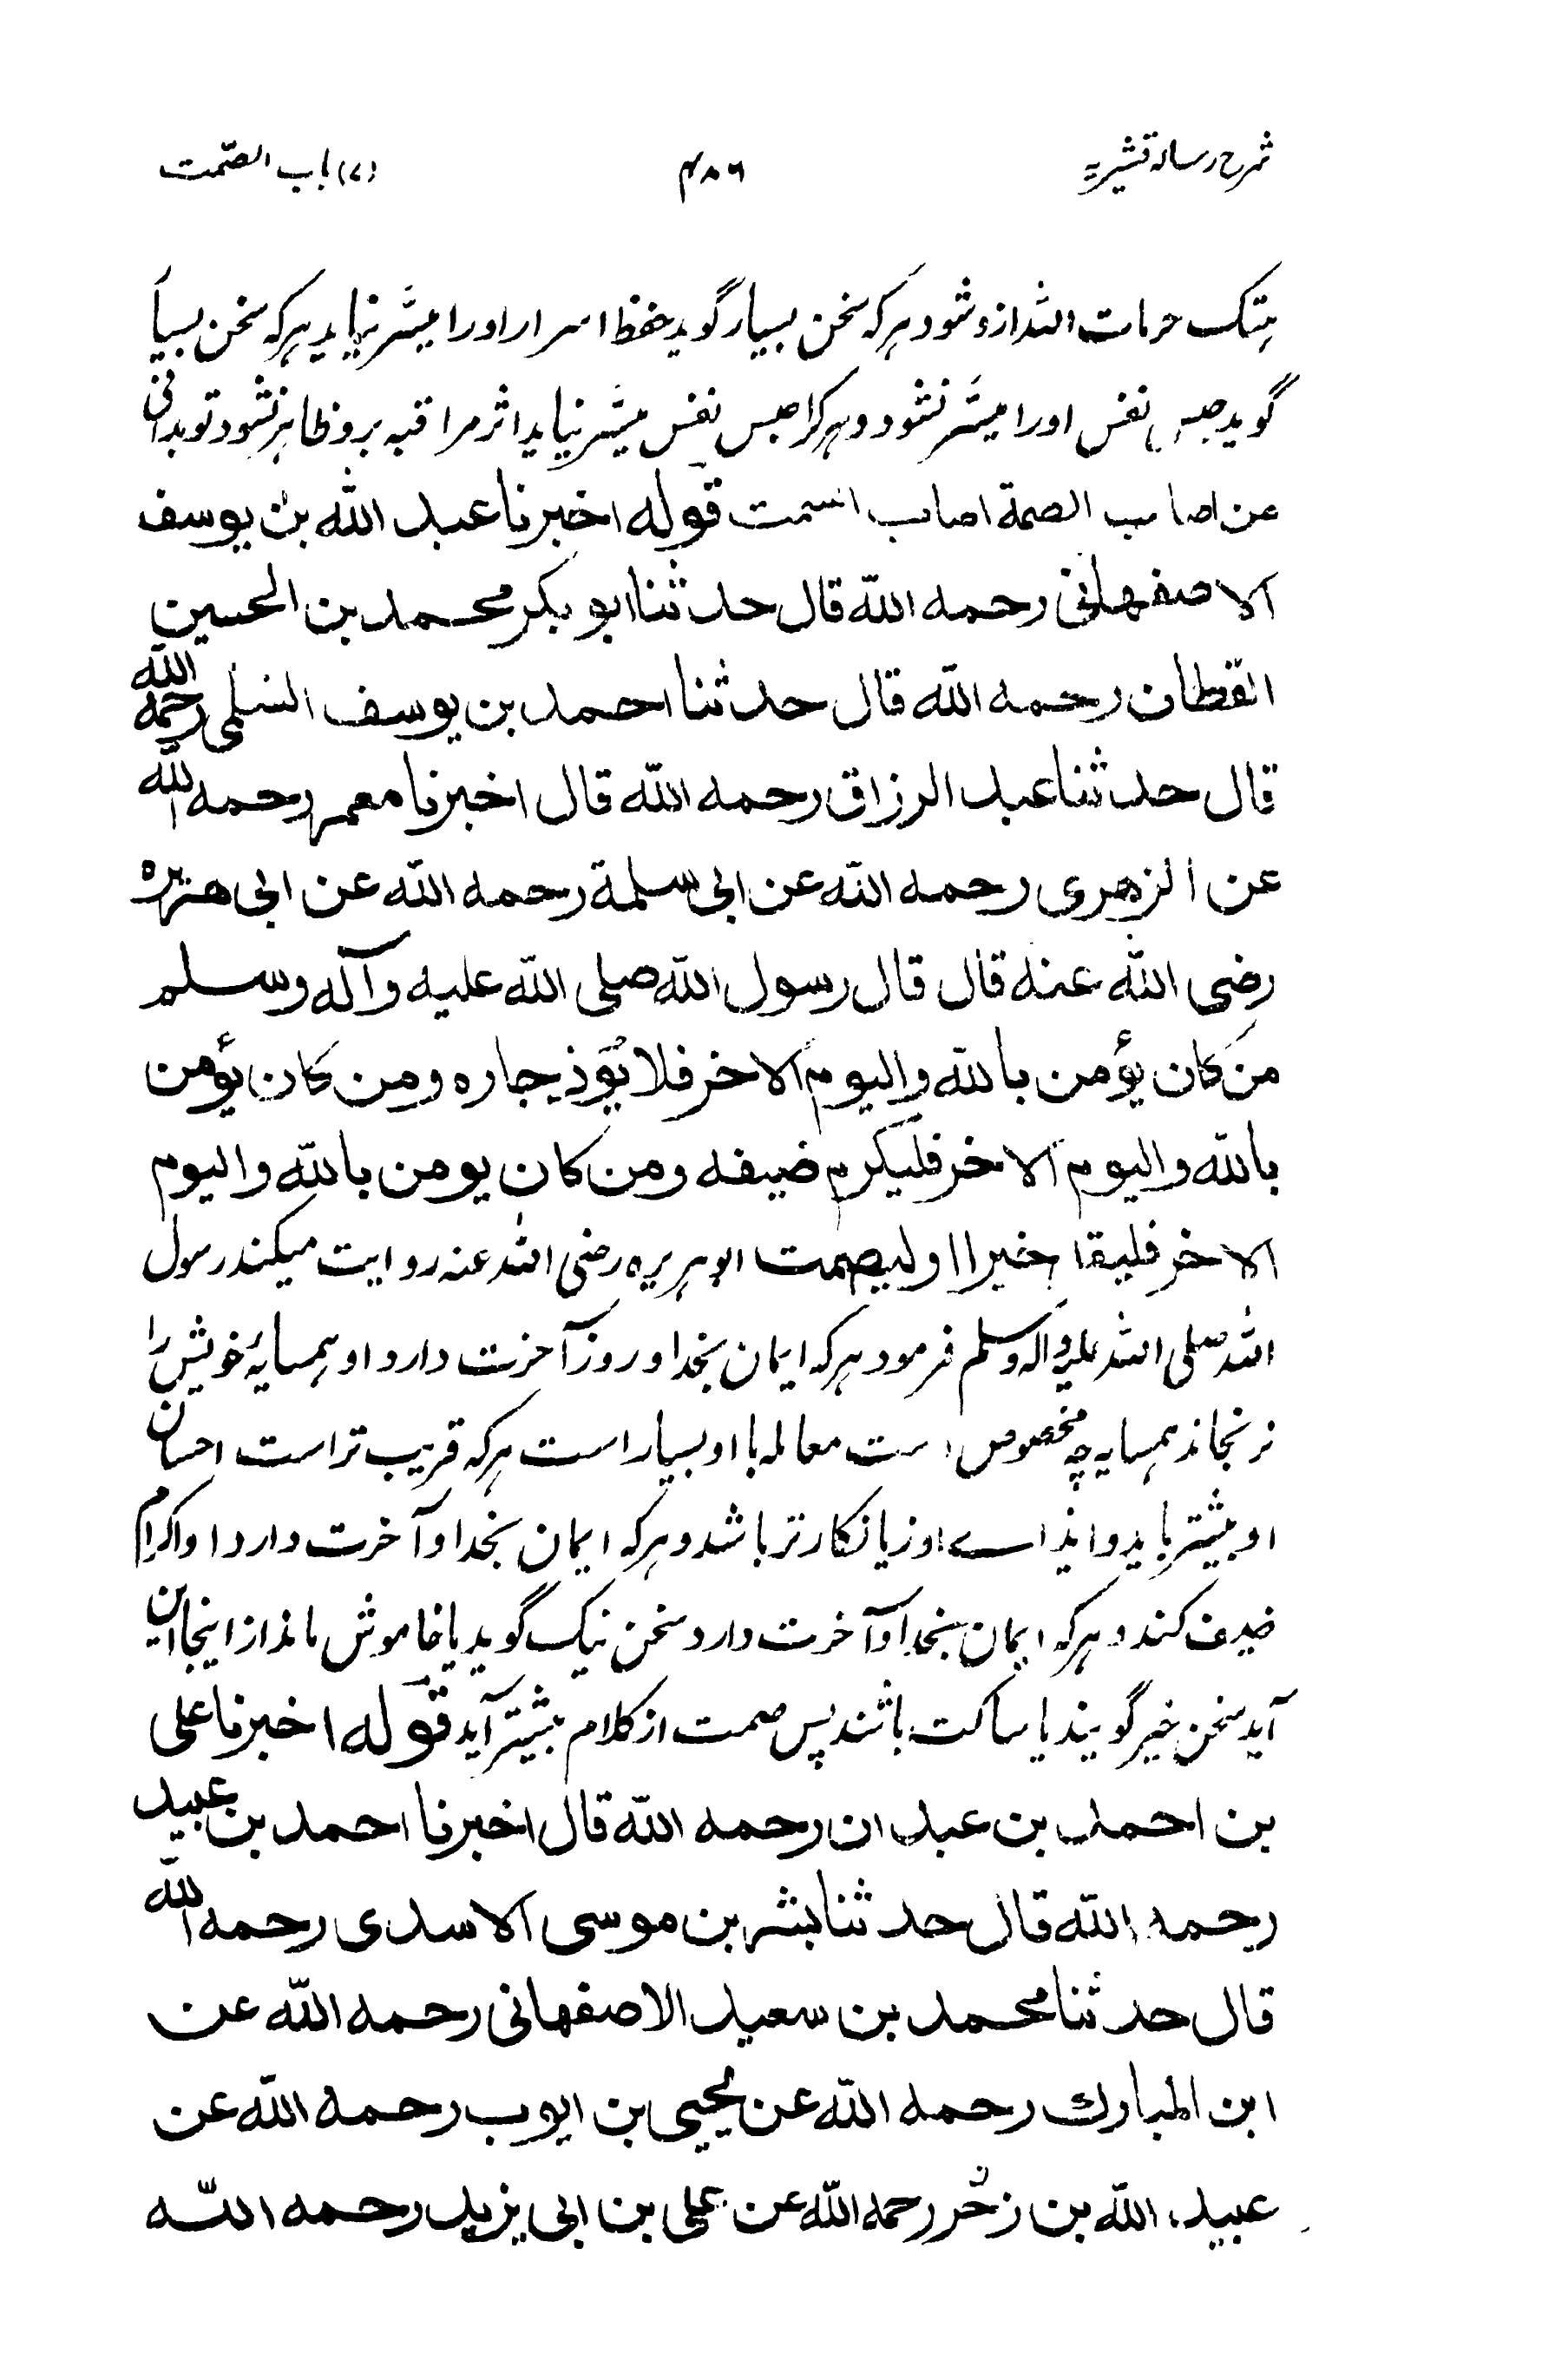 شرح رسالہ قشیریہ
۴۸۶
(۷) باب الصّمت
ہتک حرمات اللہ ازو شود ہر کہ سخن بسیار گوید حفظ اسرار اورا میسّر نیاید ہر کہ سخن بسیا
گوید حبس نفس اورا میسّر نشود و ہر کرا حبس نفس میسّر نیاید اثر مراقبہ برو ظاہر نشود تو بدانی
عن اصاب الصمة اصاب السمت قوله اخبرنا عبد الله بن يوسف
الاصفهانى رحمه الله قال حدثنا ابو بكر محمد بن الحسين
القطان رحمه الله قال حدثنا احمد بن يوسف السلمى رحمه الله
قال حدثنا عبد الرزاق رحمه الله قال اخبرنا معمر رحمه الله
عن الزهرى رحمه الله عن ابى سلمة رحمه الله عن ابى هريره
رضى الله عنه قال قال رسول الله صلى الله عليه وآله وسلم
من كان يؤمن بالله واليوم الاخر فلا يؤذ جاره ومن كان يؤمن
بالله واليوم الاخر فليكرم ضيفه ومن كان يومن بالله واليوم
الاخر فليقل خيرا اوليصمت ابو ہریرہ رضی اللہ عنہ روایت میکند رسول
اللہ صلی اللہ علیہ وآلہ وسلم فرمود ہر کہ ایمان بخدا و روز آخرت دارد او ہمسایۂ خویش را
نرنجاند ہمسایہ چہ مخصوص است معاملہ با او بسیار است ہر کہ قریب تر است احسان
او بیشتر باید و ایذاے او زیانکار تر باشد و ہر کہ ایمان بخدا و آخرت دارد او اکرام
ضیف کند و ہر کہ ایمان بخدا و آخرت دارد سخن نیک گوید یا خاموش ماند از اینجا این
آید سخن خیر گویند یا ساکت باشند پس صمت از کلام بیشتر آید قوله اخبرنا على
بن احمد بن عبد ان رحمه الله قال اخبرنا احمد بن عبيد
رحمه الله قال حدثنا بشر بن موسى الاسدى رحمه الله
قال حدثنا محمد بن سعيد الاصفهانى رحمه الله عن
ابن المبارك رحمه الله عن يحيى بن ايوب رحمه الله عن
عبيد الله بن زحر رحمه الله عن على بن ابى يزيد رحمه الله